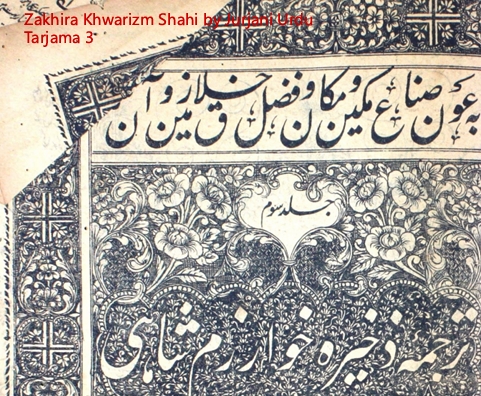 Zakhira Khwarizm Shahi by Jurjani Urdu
Tarjama 3
بہ عون صناع مکین و مکان و فضل خلاق زمین و آن
جلد سوم
ترجمہ ذخیرہ خوارزم شاہی